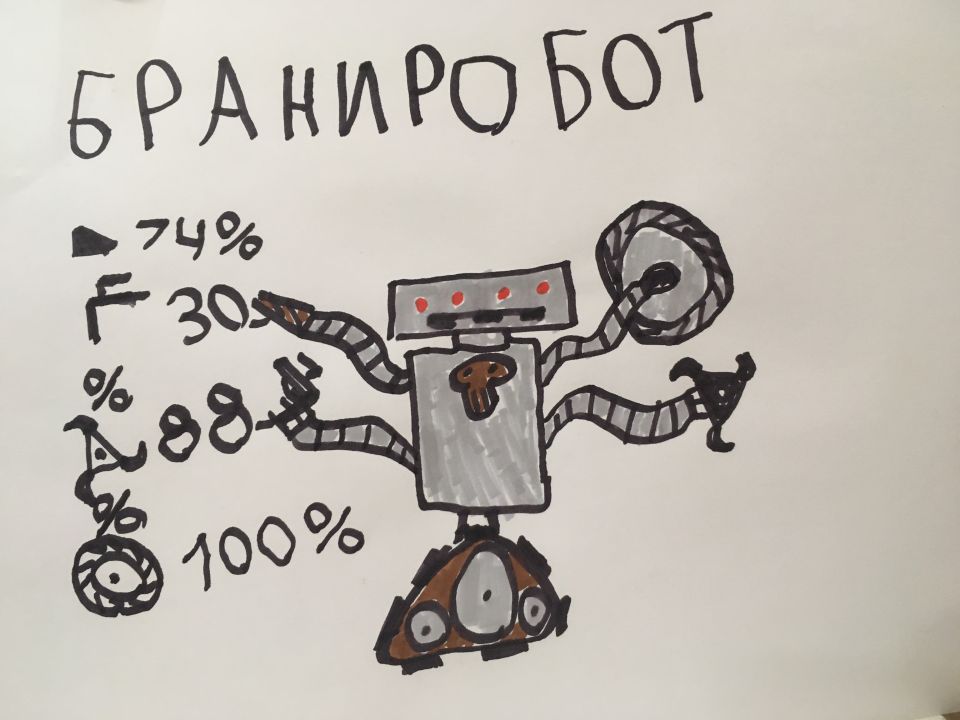 БРАНИРОБОТ
74%
30
%
88
%
100%